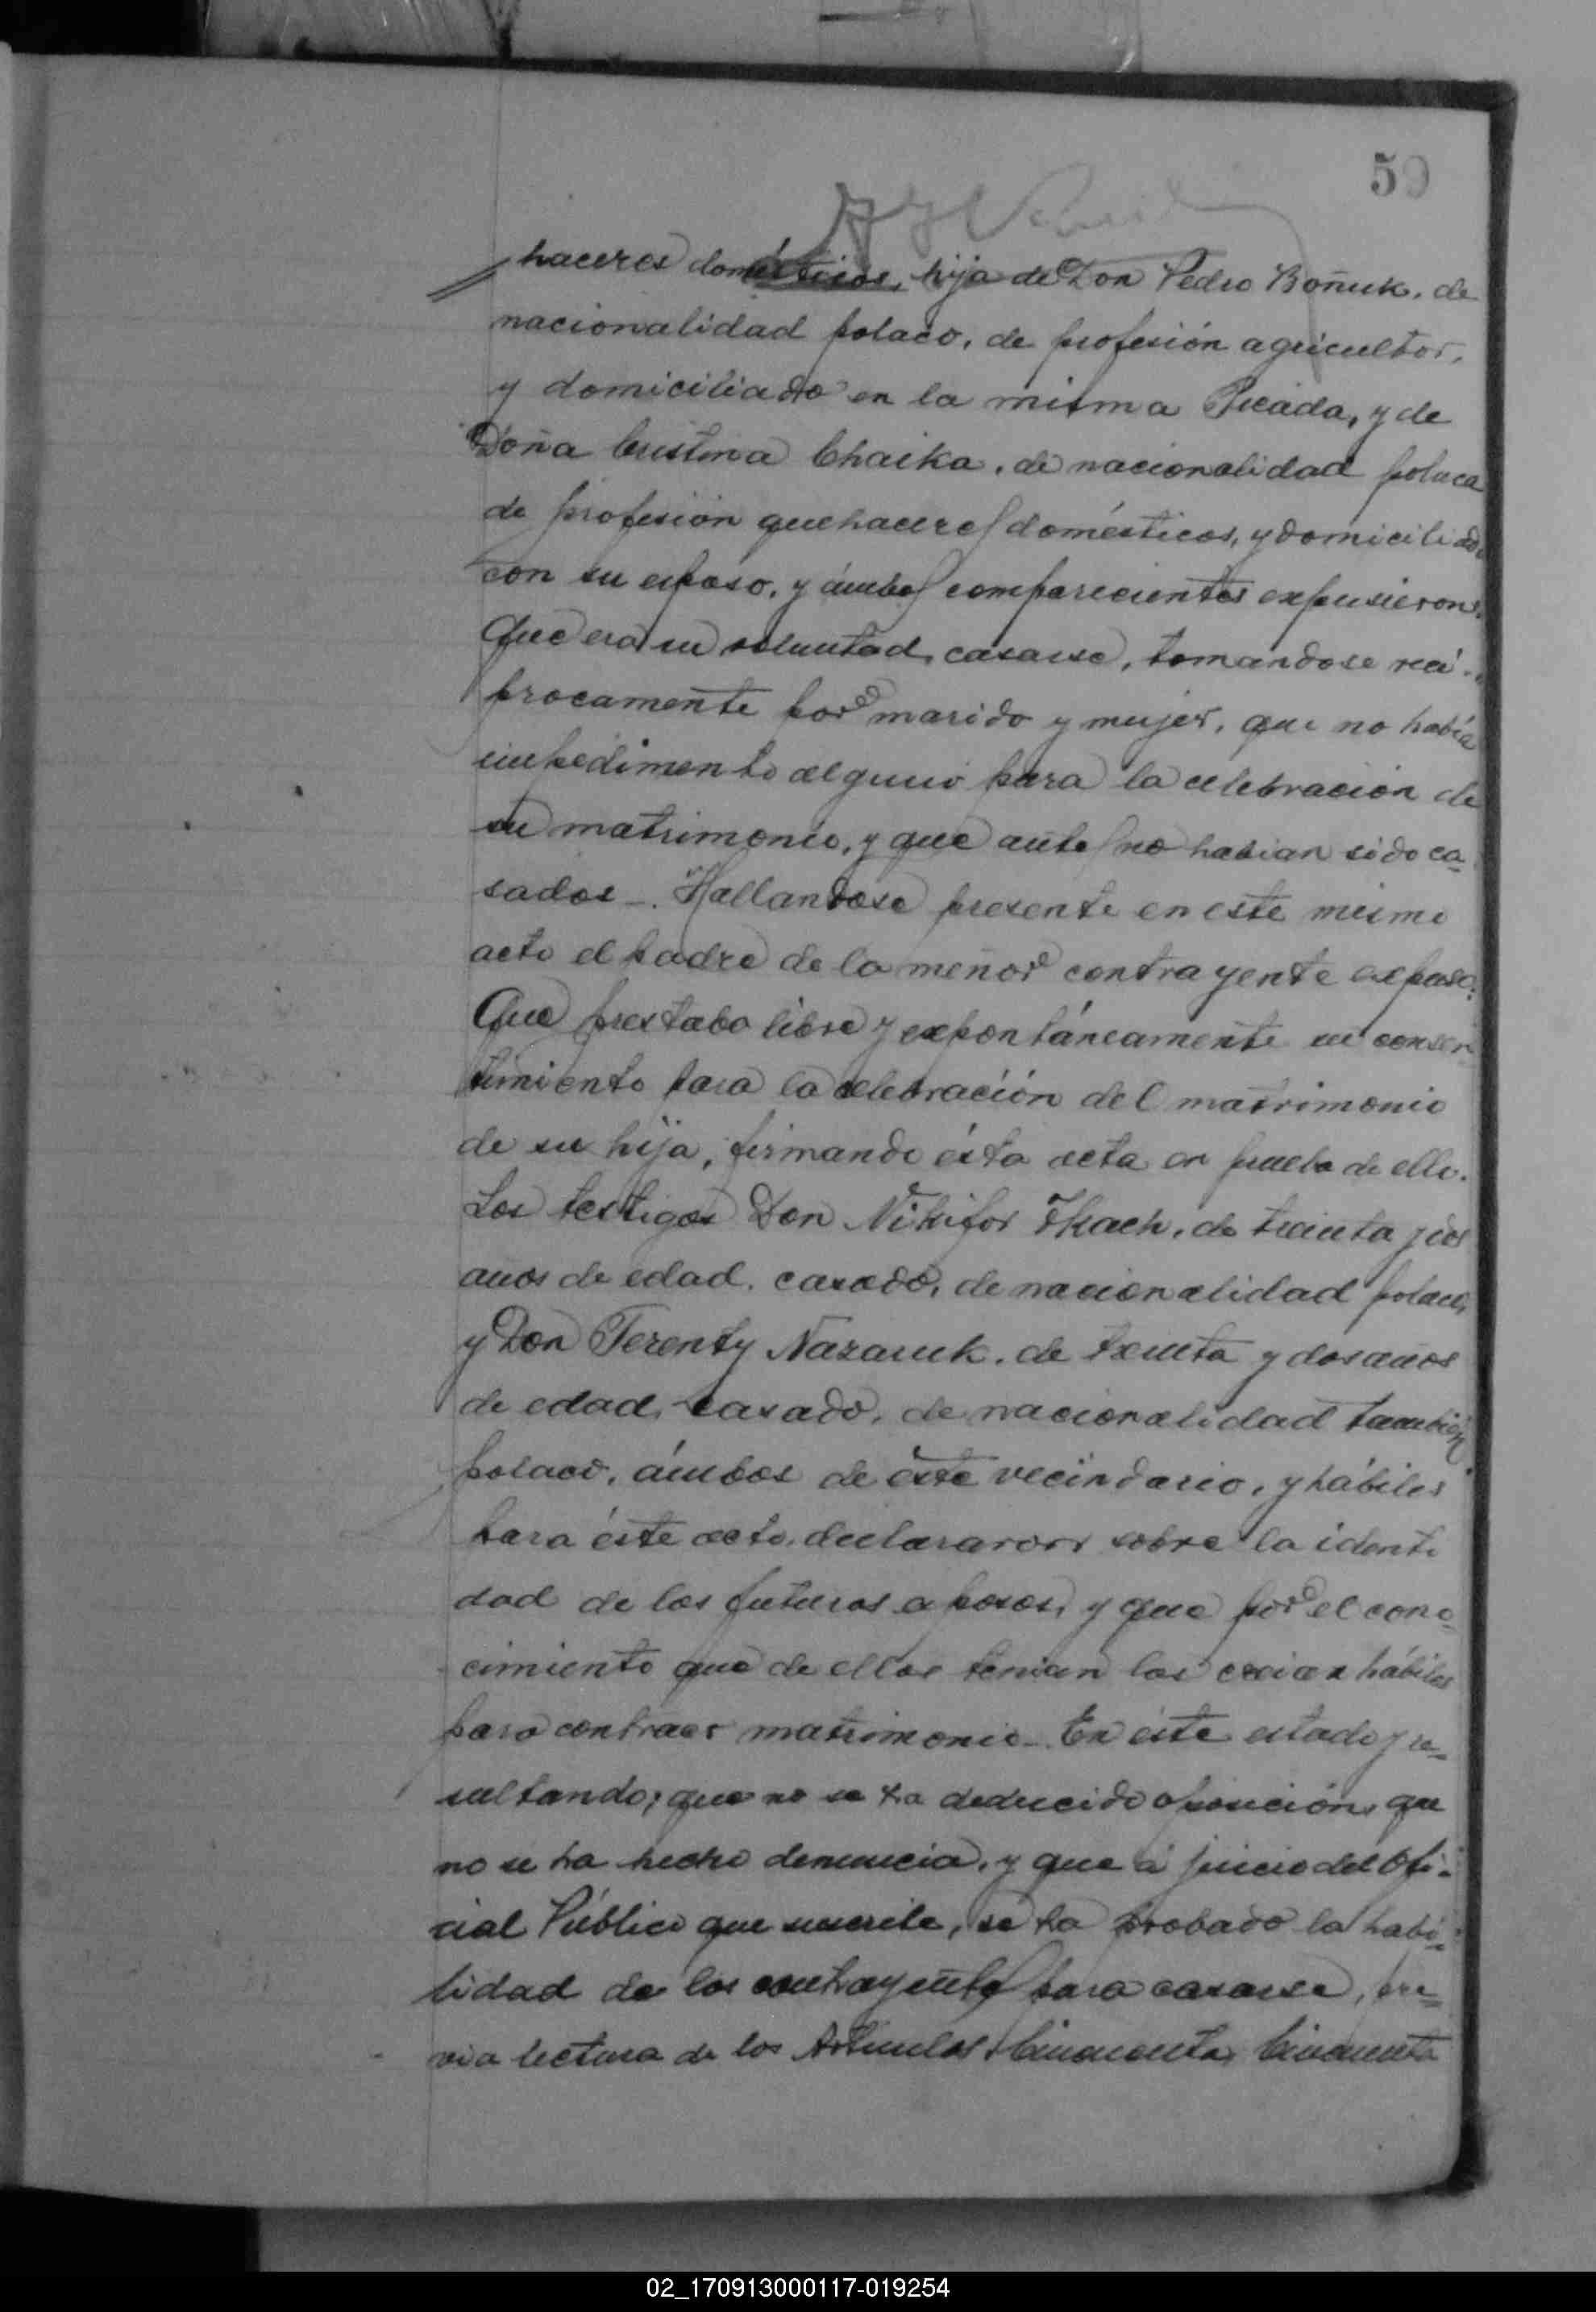 59
haceres domésticos, hija de Don Pedro Boñuk, de
nacionalidad polaco, de profesión agricultor,
y domiciliado en la misma Picada, y de
Doña Cristina Chaika, de nacionalidad polaca
de profesión quehaceres domésticos, y domiciliada
con su esposo, y ámbos comparecientes expusieron:
Que era su voluntad casarse, tomandose recí-
procamente por marido y mujer, que no había
impedimento alguno para la celebración de
su matrimonio, y que antes no habian sido ca-
sados _. Hallandose presente en este mismo
acto el padre de la menor contrayente expuso:
Que prestaba libre y expontáneamente su consen-
timiento para la celebración del matrimonio
de su hija, firmando ésta acta en prueba de ello.
Los testigos Don Nikifor Tkach, de treinta y dos
años de edad, casado, de nacionalidad polaco,
y Don Terenty Nazaruk, de treinta y dos años
de edad, casado, de nacionalidad también
polaco, ámbos de éste vecindario, y hábiles
para éste acto, declararon sobre la identi
dad de los futuros esposos, y que por el cono-
cimiento que de ellos tenian los creian hábiles
para contraer matrimonio _. En éste estado y re-
sultando; que no se ha deducido oposición, que
no se ha hecho denuncia, y que á juicio del Ofi-
cial Público que suscribe, se ha probado la habi-
lidad de los contrayentes para casarse, pre-
via lectura de los Artículos Cincuenta, Cincuenta
02_170913000117-019254